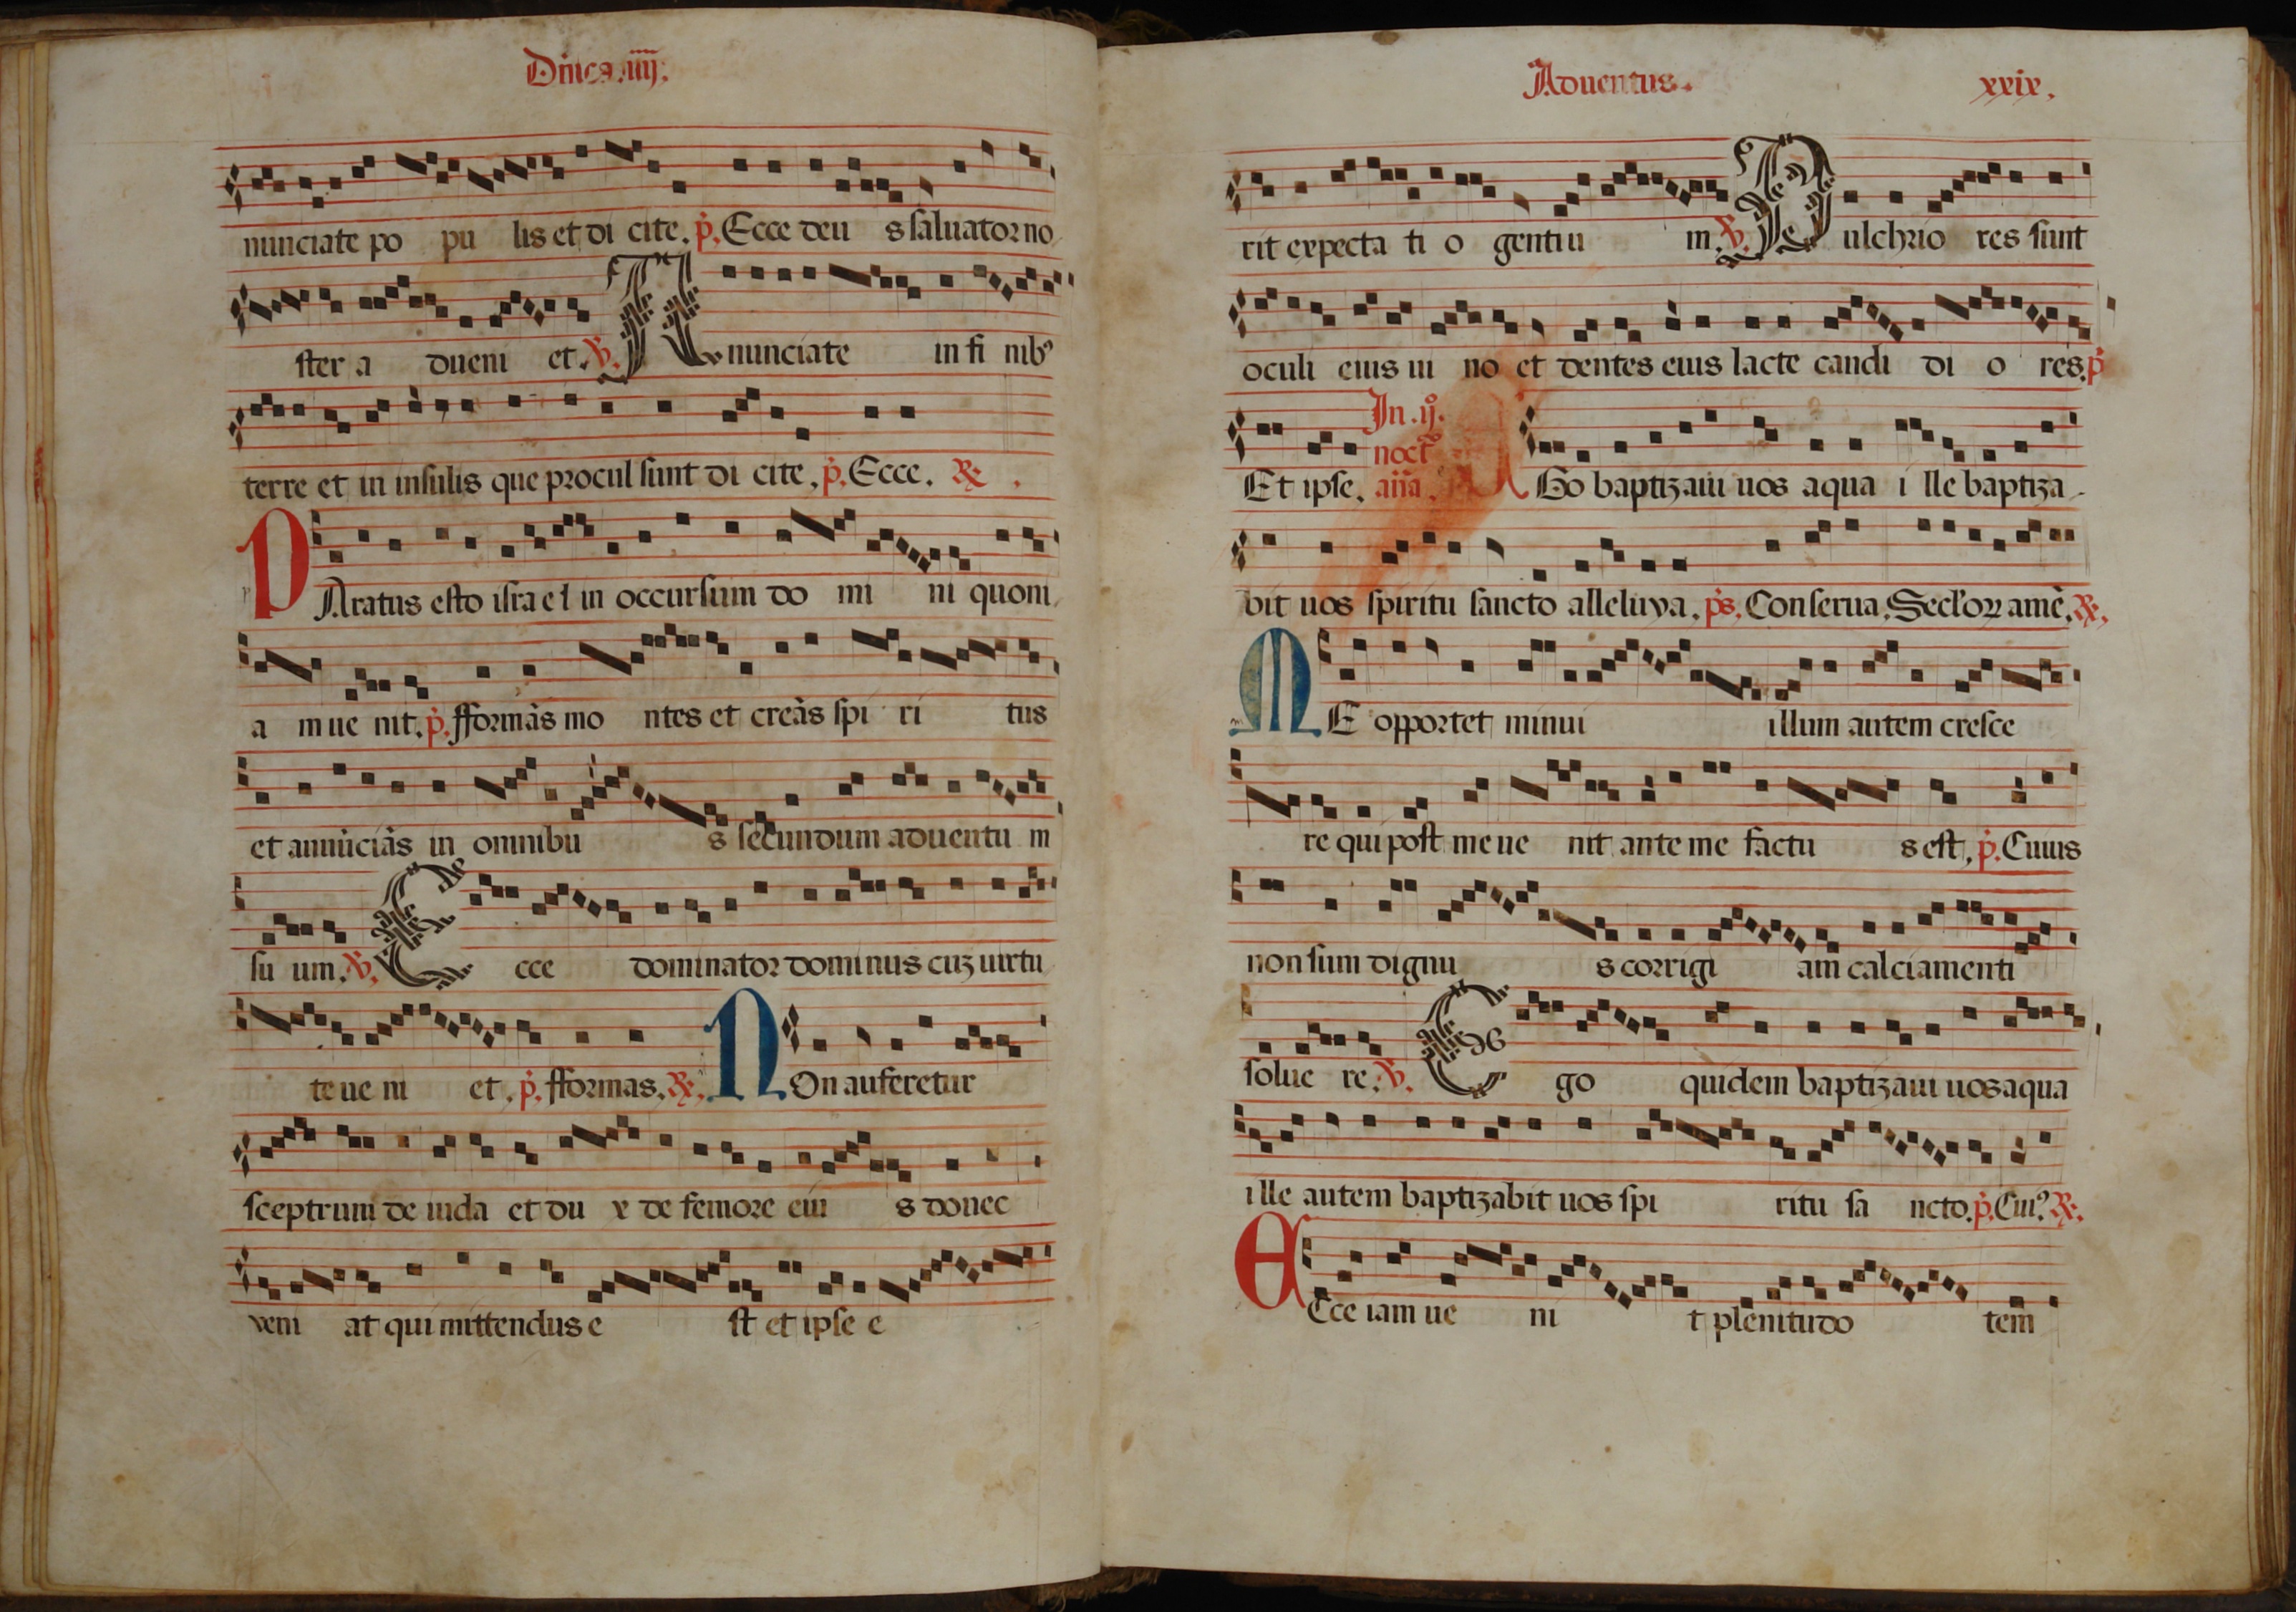 Dinica .iiij.
nunciate po pu lis et di cite. p. Ecce deu s saluator no
ster a dueni et. V. A nunciate in fi nib9
terre et in insulis que procul sunt di cite. p. Ecce. R.
PAratus esto isra el in occursum do mi ni quoni
a m ue nit. p. fformās mo ntes et creās spi ri tus
et annūciās in omnibu s secundum aduentu m
su um. V. E cce dominator dominus cuz uirtu
te ue ni et. p. fformas. R. NOn auferetur
sceptrum de iuda et du x de femore eiu s donec
veni at qui mittendus e st et ipse e
Aduentus. xxix.
rit expecta ti o gentiu m. V. P ulchrio res sunt
oculi eius ui no et dentes eius lacte candi di o res. p
Et ipse. In .ij. noct° aña. Go baptizaui uos aqua i lle baptiza
bit uos spiritu sancto alleluya. ps. Conserua. Seclorz amē. R.
ME opportet minui illum autem cresce
re qui post me ue nit ante me factu s est, p. Cuius
non sum dignu s corrigi am calciamenti
solue re. V. E go quidem baptizaui uos aqua
ille autem baptizabit uos spi ritu sa ncto. p. Cui9. R.
ECce iam ue ni t plenitudo tem